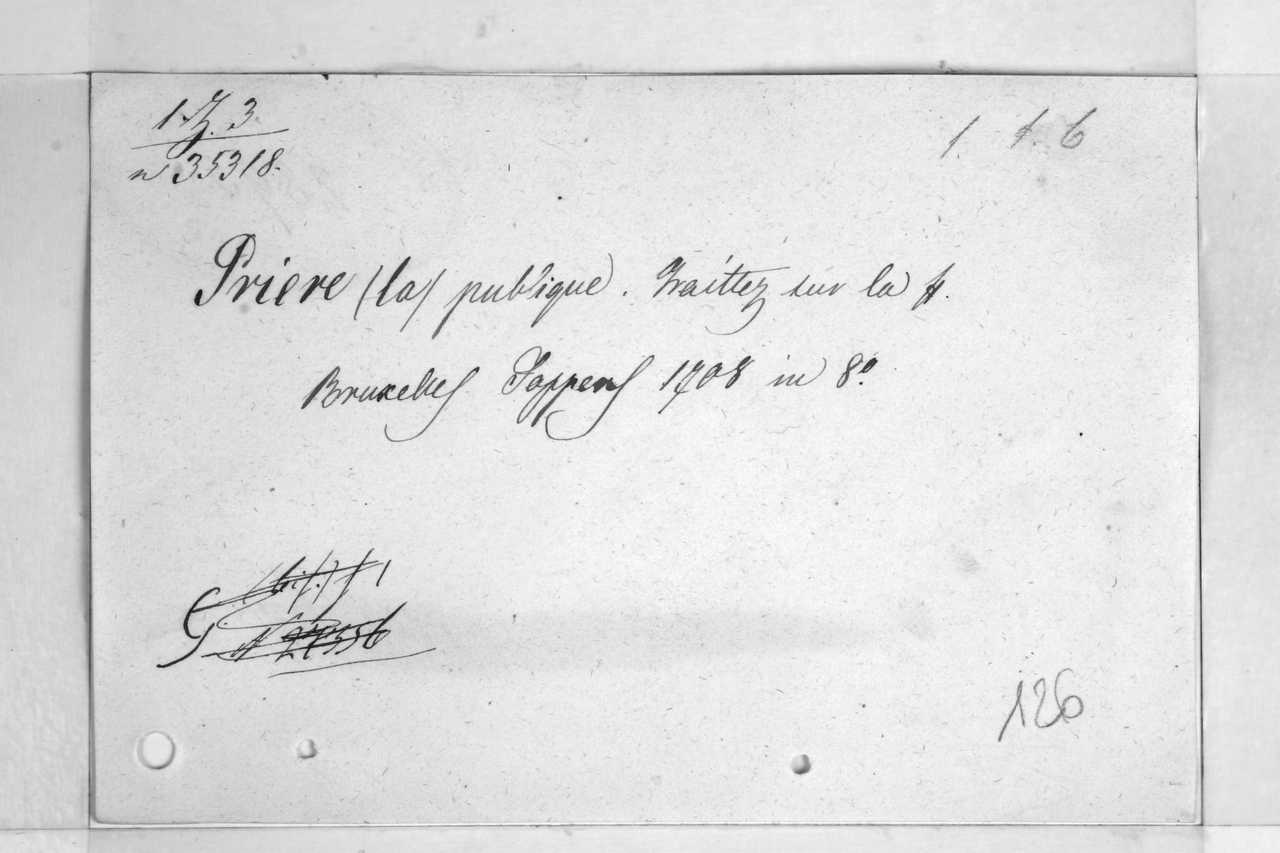 1. 3
1. t. 6
n 35318.
Priere (la) publique. Traittez sur la p.
Bruxelles Foppens 1708 in 8º
G
126